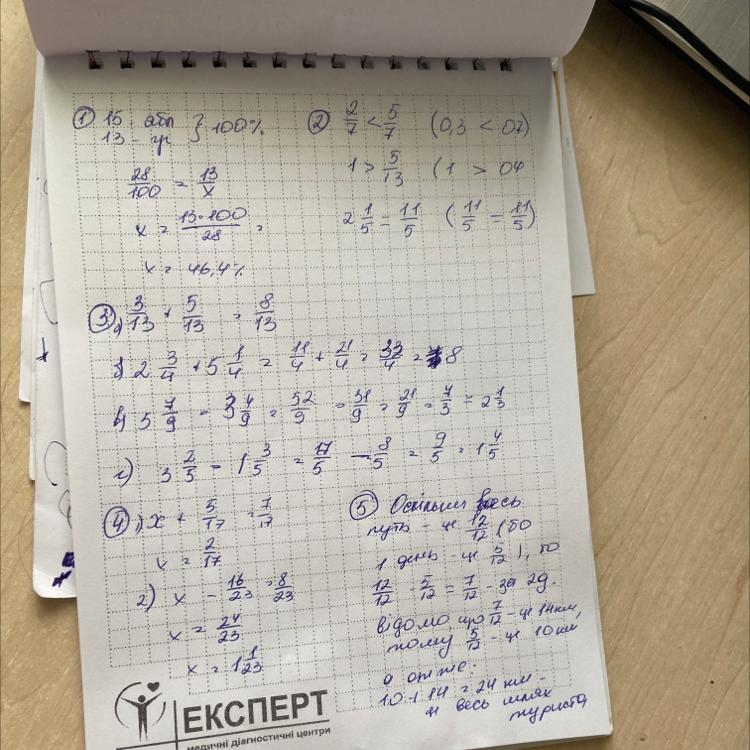 ① 15 - абр
13 - гр } 100%
28/100 = 13/x
x = 13·100/28 =
x = 46,4%
② 2/7 < 5/7 (0,3 < 0,7)
1 > 5/13 (1 > 0,4
2 1/5 = 11/5 (11/5 = 11/5)
③ а) 3/13 + 5/13 = 8/13
б) 2 3/4 + 5 1/4 = 11/4 + 21/4 = 32/4 = 8
в) 5 7/9 - 3 4/9 = 52/9 - 31/9 = 21/9 = 7/3 = 2 1/3
г) 3 2/5 - 1 3/5 = 17/5 - 8/5 = 9/5 = 1 4/5
④ 1) x + 5/17 = 7/17
x = 2/17
2) x - 16/23 = 8/23
x = 24/23
x = 1 1/23
⑤ Оскільки весь
путь - це 12/12 (бо
1 день - це 5/12), то
12/12 - 5/12 = 7/12 - за 2д.
відомо що 7/12 - це 14км,
тому 5/12 - це 10 км
а отже:
10 + 14 = 24 км -
це весь шлях
туриста
ЕКСПЕРТ
медичні діагностичні центри